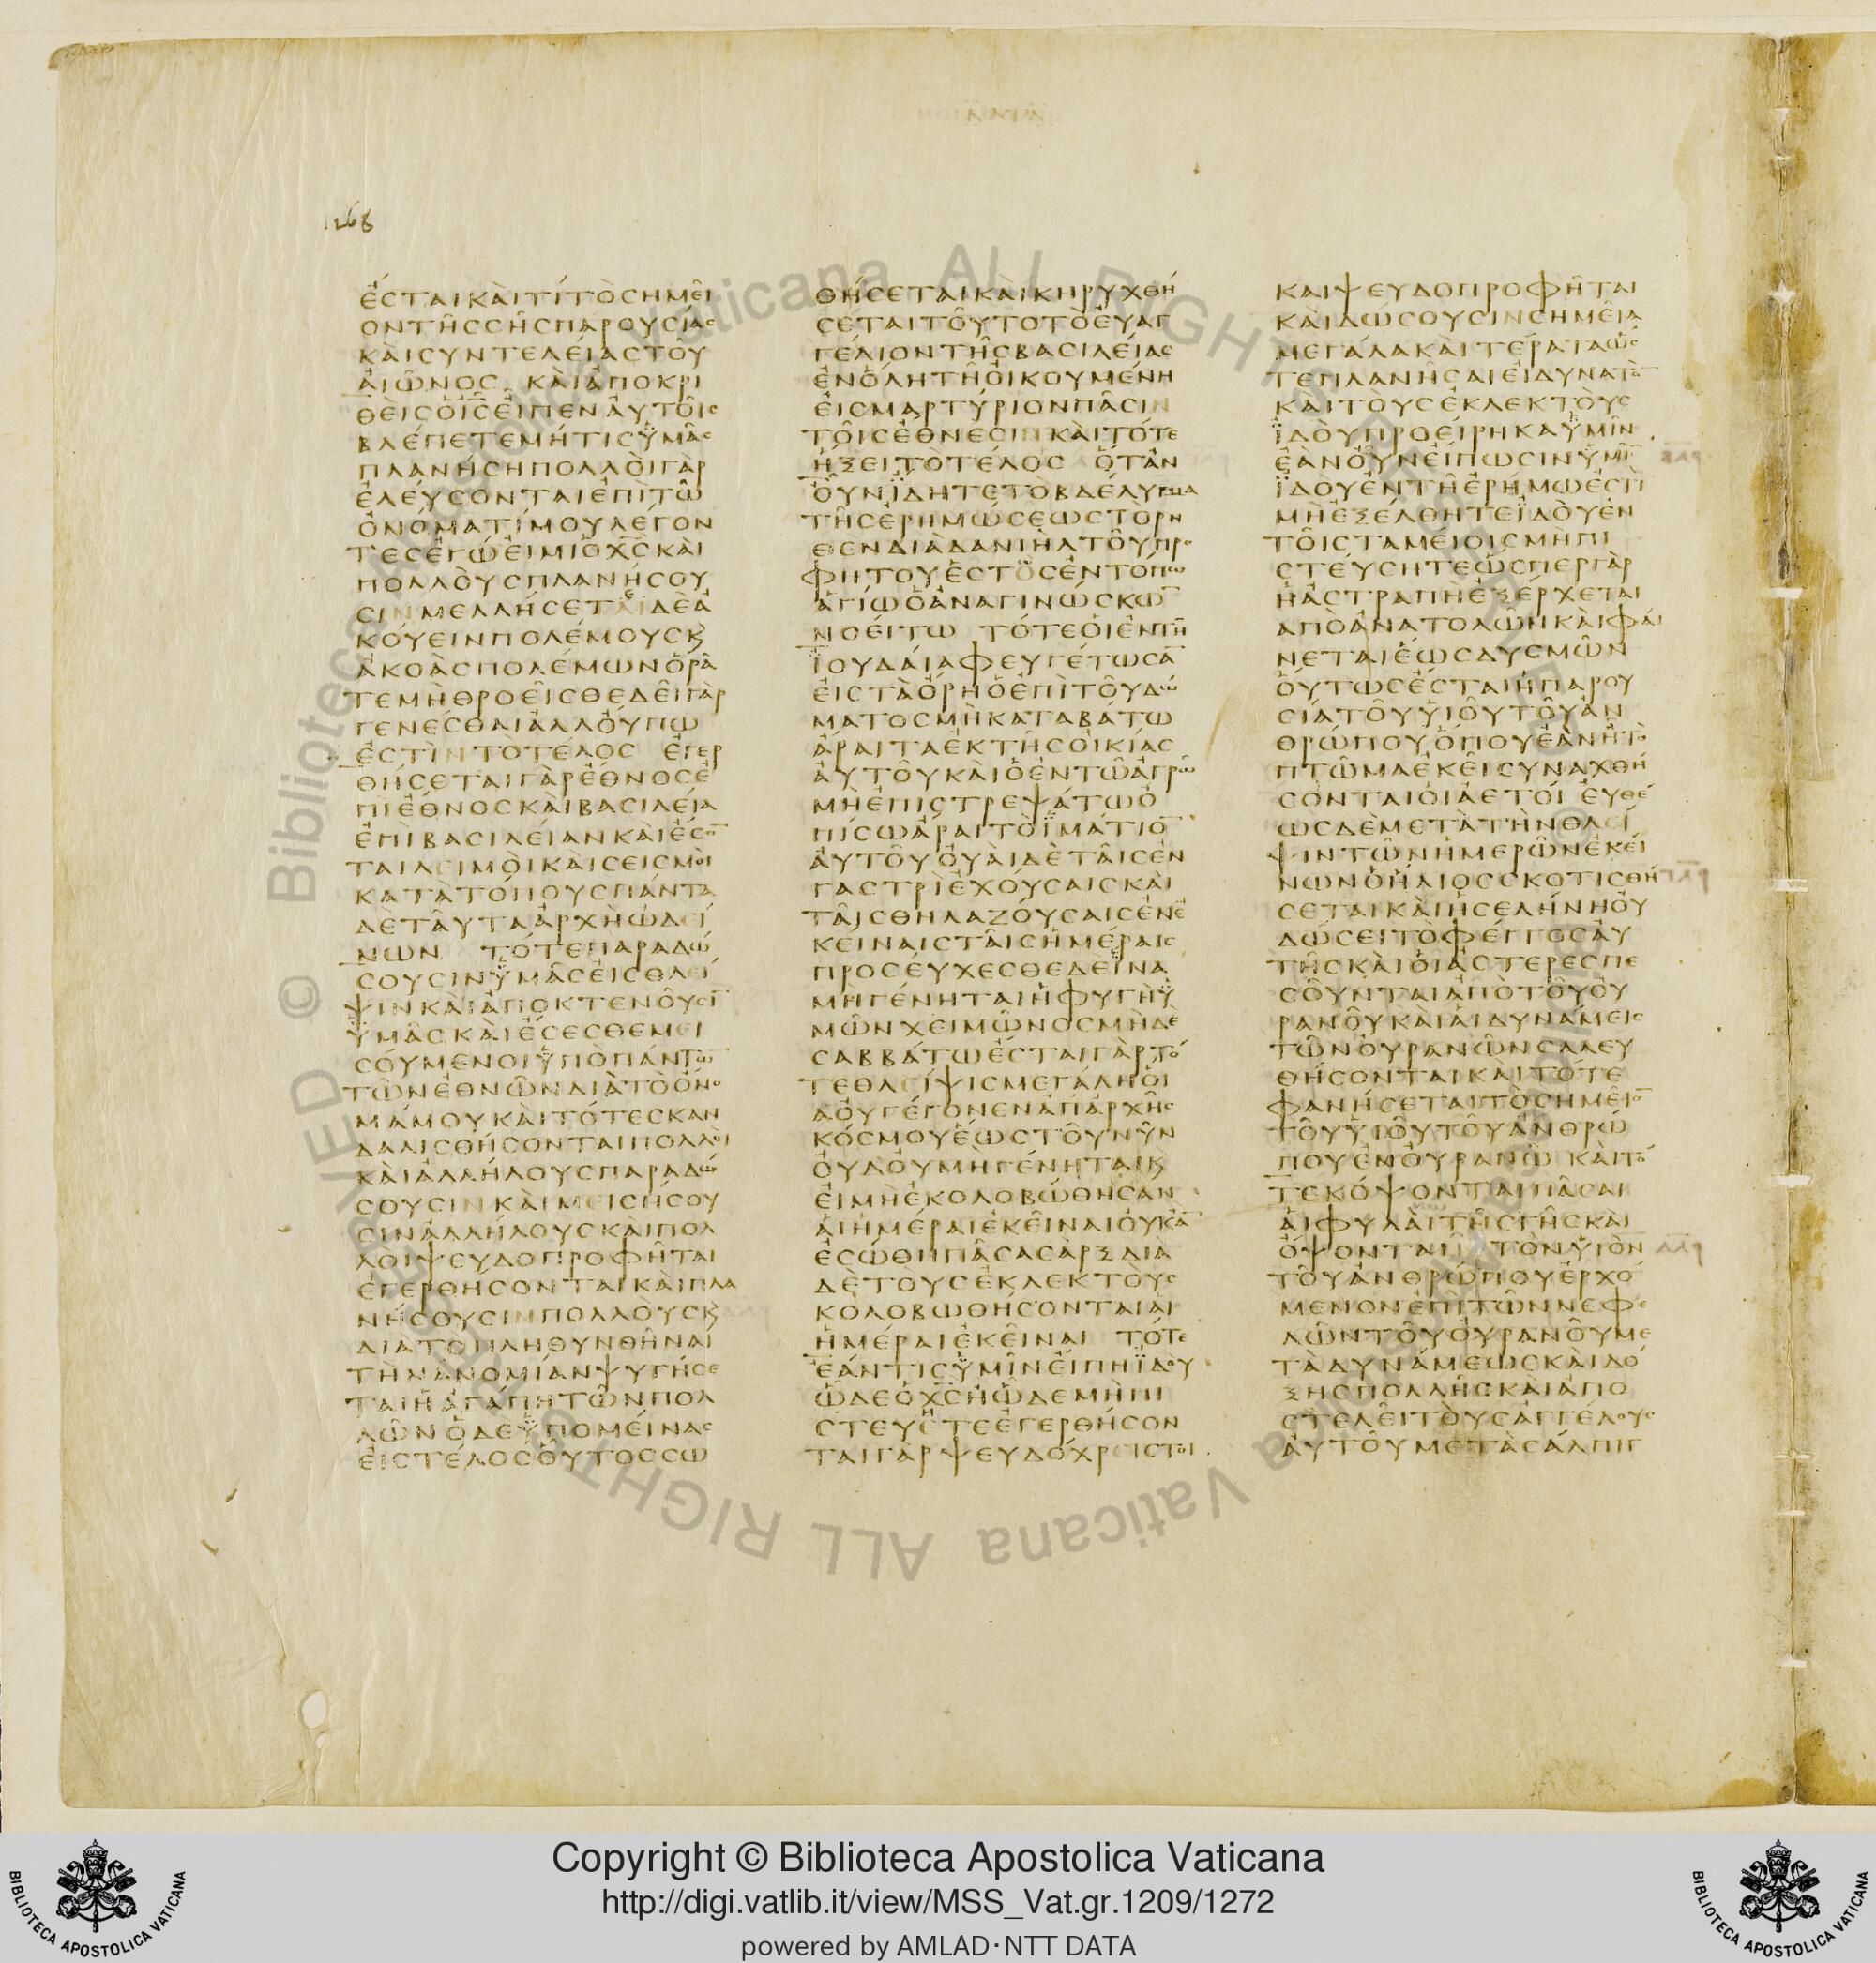 1268
ΕϹΤΑΙΚΑΙΤΙΤΟϹΗΜΕΙ
ΟΝΤΗϹϹΗϹΠΑΡΟΥϹΙΑϹ
ΚΑΙϹΥΝΤΕΛΕΙΑϹΤΟΥ
ΑΙΩΝΟϹ ΚΑΙΑΠΟΚΡΙ
ΘΕΙϹΟΙ̅Ϲ̅ΕΙΠΕΝΑΥΤΟΙϹ
ΒΛΕΠΕΤΕΜΗΤΙϹΫΜΑϹ
ΠΛΑΝΗϹΗΠΟΛΛΟΙΓΑΡ
ΕΛΕΥϹΟΝΤΑΙΕΠΙΤΩ
ΟΝΟΜΑΤΙΜΟΥΛΕΓΟΝ
ΤΕϹΕΓΩΕΙΜΙΟΧ̅Ϲ̅ΚΑΙ
ΠΟΛΛΟΥϹΠΛΑΝΗϹΟΥ
ϹΙΝΜΕΛΛΗϹΕΤΑΙΔΕΑ
ΚΟΥΕΙΝΠΟΛΕΜΟΥϹϗ
ΑΚΟΑϹΠΟΛΕΜΩΝΟΡΑ
ΤΕΜΗΘΡΟΕΙϹΘΕΔΕΙΓΑΡ
ΓΕΝΕϹΘΑΙΑΛΛΟΥΠΩ
ΕϹΤΙΝΤΟΤΕΛΟϹ ΕΓΕΡ
ΘΗϹΕΤΑΙΓΑΡΕΘΝΟϹΕ
ΠΙΕΘΝΟϹΚΑΙΒΑϹΙΛΕΙΑ
ΕΠΙΒΑϹΙΛΕΙΑΝΚΑΙΕϹΟ̅
ΤΑΙΛΕΙΜΟΙΚΑΙϹΕΙϹΜΟΙ
ΚΑΤΑΤΟΠΟΥϹΠΑΝΤΑ
ΔΕΤΑΥΤΑΑΡΧΗΩΔΕΙ
ΝΩΝ ΤΟΤΕΠΑΡΑΔΩ
ϹΟΥϹΙΝΫΜΑϹΕΙϹΘΛΕΙ
ΨΙΝΚΑΙΑΠΟΚΤΕΝΟΥϹΙ̅
ΫΜΑϹΚΑΙΕϹΕϹΘΕΜΕΙ
ϹΟΥΜΕΝΟΙΫΠΟΠΑΝΤΩ̅
ΤΩΝΕΘΝΩΝΔΙΑΤΟΟΝΟ
ΜΑΜΟΥΚΑΙΤΟΤΕϹΚΑΝ
ΔΑΛΙϹΘΗϹΟΝΤΑΙΠΟΛΛΟΙ
ΚΑΙΑΛΛΗΛΟΥϹΠΑΡΑΔΩ
ϹΟΥϹΙΝΚΑΙΜΕΙϹΗϹΟΥ
ϹΙΝΑΛΛΗΛΟΥϹΚΑΙΠΟΛ
ΛΟΙΨΕΥΔΟΠΡΟΦΗΤΑΙ
ΕΓΕΡΘΗϹΟΝΤΑΙΚΑΙΠΛΑ
ΝΗϹΟΥϹΙΝΠΟΛΛΟΥϹϗ
ΔΙΑΤΟΠΛΗΘΥΝΘΗΝΑΙ
ΤΗΝΑΝΟΜΙΑΝΨΥΓΗϹΕ
ΤΑΙΗΑΓΑΠΗΤΩΝΠΟΛ
ΛΩΝΟΔΕΫΠΟΜΕΙΝΑϹ
ΕΙϹΤΕΛΟϹΟΥΤΟϹϹΩ
ΘΗϹΕΤΑΙΚΑΙΚΗΡΥΧΘΗ
ϹΕΤΑΙΤΟΥΤΟΤΟΕΥΑΓ
ΓΕΛΙΟΝΤΗϹΒΑϹΙΛΕΙΑϹ
ΕΝΟΛΗΤΗΟΙΚΟΥΜΕΝΗ
ΕΙϹΜΑΡΤΥΡΙΟΝΠΑϹΙΝ
ΤΟΙϹΕΘΝΕϹΙΝΚΑΙΤΟΤΕ
ΗΞΕΙΤΟΤΕΛΟϹ ΟΤΑΝ
ΟΥΝΪΔΗΤΕΤΟΒΔΕΛΥΓΜΑ
ΤΗϹΕΡΗΜΩϹΕΩϹΤΟΡΗ
ΘΕΝΔΙΑΔΑΝΙΗΛΤΟΥΠΡΟ
ΦΗΤΟΥΕϹΤΟϹΕΝΤΟΠΩ
ΑΓΙΩΟΑΝΑΓΙΝΩϹΚΩ̅
ΝΟΕΙΤΩ ΤΟΤΕΟΙΕΝΤΗ
ΪΟΥΔΑΙΑΦΕΥΓΕΤΩϹΑ̅
ΕΙϹΤΑΟΡΗΟΕΠΙΤΟΥΔΩ
ΜΑΤΟϹΜΗΚΑΤΑΒΑΤΩ
ΑΡΑΙΤΑΕΚΤΗϹΟΙΚΙΑϹ
ΑΥΤΟΥΚΑΙΟΕΝΤΩΑΓΡΩ
ΜΗΕΠΙϹΤΡΕΨΑΤΩΟ
ΠΙϹΩΑΡΑΙΤΟΪΜΑΤΙΟ̅
ΑΥΤΟΥΟΥΑΙΔΕΤΑΙϹΕΝ
ΓΑϹΤΡΙΕΧΟΥϹΑΙϹΚΑΙ
ΤΑΙϹΘΗΛΑΖΟΥϹΑΙϹΕΝΕ
ΚΕΙΝΑΙϹΤΑΙϹΗΜΕΡΑΙϹ
ΠΡΟϹΕΥΧΕϹΘΕΔΕΪΝΑ
ΜΗΓΕΝΗΤΑΙΗΦΥΓΗΫ
ΜΩΝΧΕΙΜΩΝΟϹΜΗΔΕ
ϹΑΒΒΑΤΩΕϹΤΑΙΓΑΡΤΟ
ΤΕΘΛΕΙΨΙϹΜΕΓΑΛΗΟΙ
ΑΟΥΓΕΓΟΝΕΝΑΠΑΡΧΗϹ
ΚΟϹΜΟΥΕΩϹΤΟΥΝΥΝ
ΟΥΔΟΥΜΗΓΕΝΗΤΑΙϗ
ΕΙΜΗΕΚΟΛΟΒΩΘΗϹΑΝ
ΑΙΗΜΕΡΑΙΕΚΕΙΝΑΙΟΥΚΑ̅
ΕϹΩΘΗΠΑϹΑϹΑΡΞΔΙΑ
ΔΕΤΟΥϹΕΚΛΕΚΤΟΥϹ
ΚΟΛΟΒΩΘΗϹΟΝΤΑΙΑΙ
ΗΜΕΡΑΙΕΚΕΙΝΑΙ ΤΟΤΕ
ΕΑΝΤΙϹΫΜΙΝΕΙΠΗΪΔΟΥ
ΩΔΕΟΧ̅Ϲ̅ΗΩΔΕΜΗΠΙ
ϹΤΕΥΕΤΕΕΓΕΡΘΗϹΟΝ
ΤΑΙΓΑΡΨΕΥΔΟΧΡΕΙϹΤΟΙ
ΚΑΙΨΕΥΔΟΠΡΟΦΗΤΑΙ
ΚΑΙΔΩϹΟΥϹΙΝϹΗΜΕΙΑ
ΜΕΓΑΛΑΚΑΙΤΕΡΑΤΑΩϹ
ΤΕΠΛΑΝΗϹΑΙΕΙΔΥΝΑΤΟ̅
ΚΑΙΤΟΥϹΕΚΛΕΚΤΟΥϹ
ΪΔΟΥΠΡΟΕΙΡΗΚΑΫΜΙΝ
ΕΑΝΟΥΝΕΙΠΩϹΙΝΫΜΙ̅
ΪΔΟΥΕΝΤΗΕΡΗΜΩΕϹΤΙ
ΜΗΕΞΕΛΘΗΤΕΪΔΟΥΕΝ
ΤΟΙϹΤΑΜΕΙΟΙϹΜΗΠΙ
ϹΤΕΥϹΗΤΕΩϹΠΕΡΓΑΡ
ΗΑϹΤΡΑΠΗΕΞΕΡΧΕΤΑΙ
ΑΠΟΑΝΑΤΟΛΩΝΚΑΙΦΑΙ
ΝΕΤΑΙΕΩϹΔΥϹΜΩΝ
ΟΥΤΩϹΕϹΤΑΙΗΠΑΡΟΥ
ϹΙΑΤΟΥΫΙΟΥΤΟΥΑΝ
ΘΡΩΠΟΥΟΠΟΥΕΑΝΗΤΟ
ΠΤΩΜΑΕΚΕΙϹΥΝΑΧΘΗ
ϹΟΝΤΑΙΟΙΑΕΤΟΙ ΕΥΘΕ
ΩϹΔΕΜΕΤΑΤΗΝΘΛΕΙ
ΨΙΝΤΩΝΗΜΕΡΩΝΕΚΕΙ
ΝΩΝΟΗΛΙΟϹϹΚΟΤΙϹΘΗ
ϹΕΤΑΙΚΑΙΗϹΕΛΗΝΗΟΥ
ΔΩϹΕΙΤΟΦΕΓΓΟϹΑΥ
ΤΗϹΚΑΙΟΙΑϹΤΕΡΕϹΠΕ
ϹΟΥΝΤΑΙΑΠΟΤΟΥΟΥ
ΡΑΝΟΥΚΑΙΑΙΔΥΝΑΜΕΙϹ
ΤΩΝΟΥΡΑΝΩΝϹΑΛΕΥ
ΘΗϹΟΝΤΑΙΚΑΙΤΟΤΕ
ΦΑΝΗϹΕΤΑΙΤΟϹΗΜΕΙΟ̅
ΤΟΥΫΙΟΥΤΟΥΑΝΘΡΩ
ΠΟΥΕΝΟΥΡΑΝΩ ΚΑΙΤΟ
ΤΕΚΟΨΟΝΤΑΙΠΑϹΑΙ
ΑΙΦΥΛΑΙΤΗϹΓΗϹΚΑΙ
ΟΨΟΝΤΑΙ ΤΟΝΫΙΟΝ
ΤΟΥΑΝΘΡΩΠΟΥΕΡΧΟ
ΜΕΝΟΝΕΠΙΤΩΝΝΕΦΕ
ΛΩΝΤΟΥΟΥΡΑΝΟΥΜΕ
ΤΑΔΥΝΑΜΕΩϹΚΑΙΔΟ
ΞΗϹΠΟΛΛΗϹΚΑΙΑΠΟ
ϹΤΕΛΕΙΤΟΥϹΑΓΓΕΛΟΥϹ
ΑΥΤΟΥΜΕΤΑϹΑΛΠΙΓ
Copyright © Biblioteca Apostolica Vaticana
http://digi.vatlib.it/view/MSS_Vat.gr.1209/1272
powered by AMLAD·NTT DATA
BIBLIOTECA APOSTOLICA VATICANA
BIBLIOTECA APOSTOLICA VATICANA
© Biblioteca Apostolica Vaticana ALL RIGHTS RESERVED